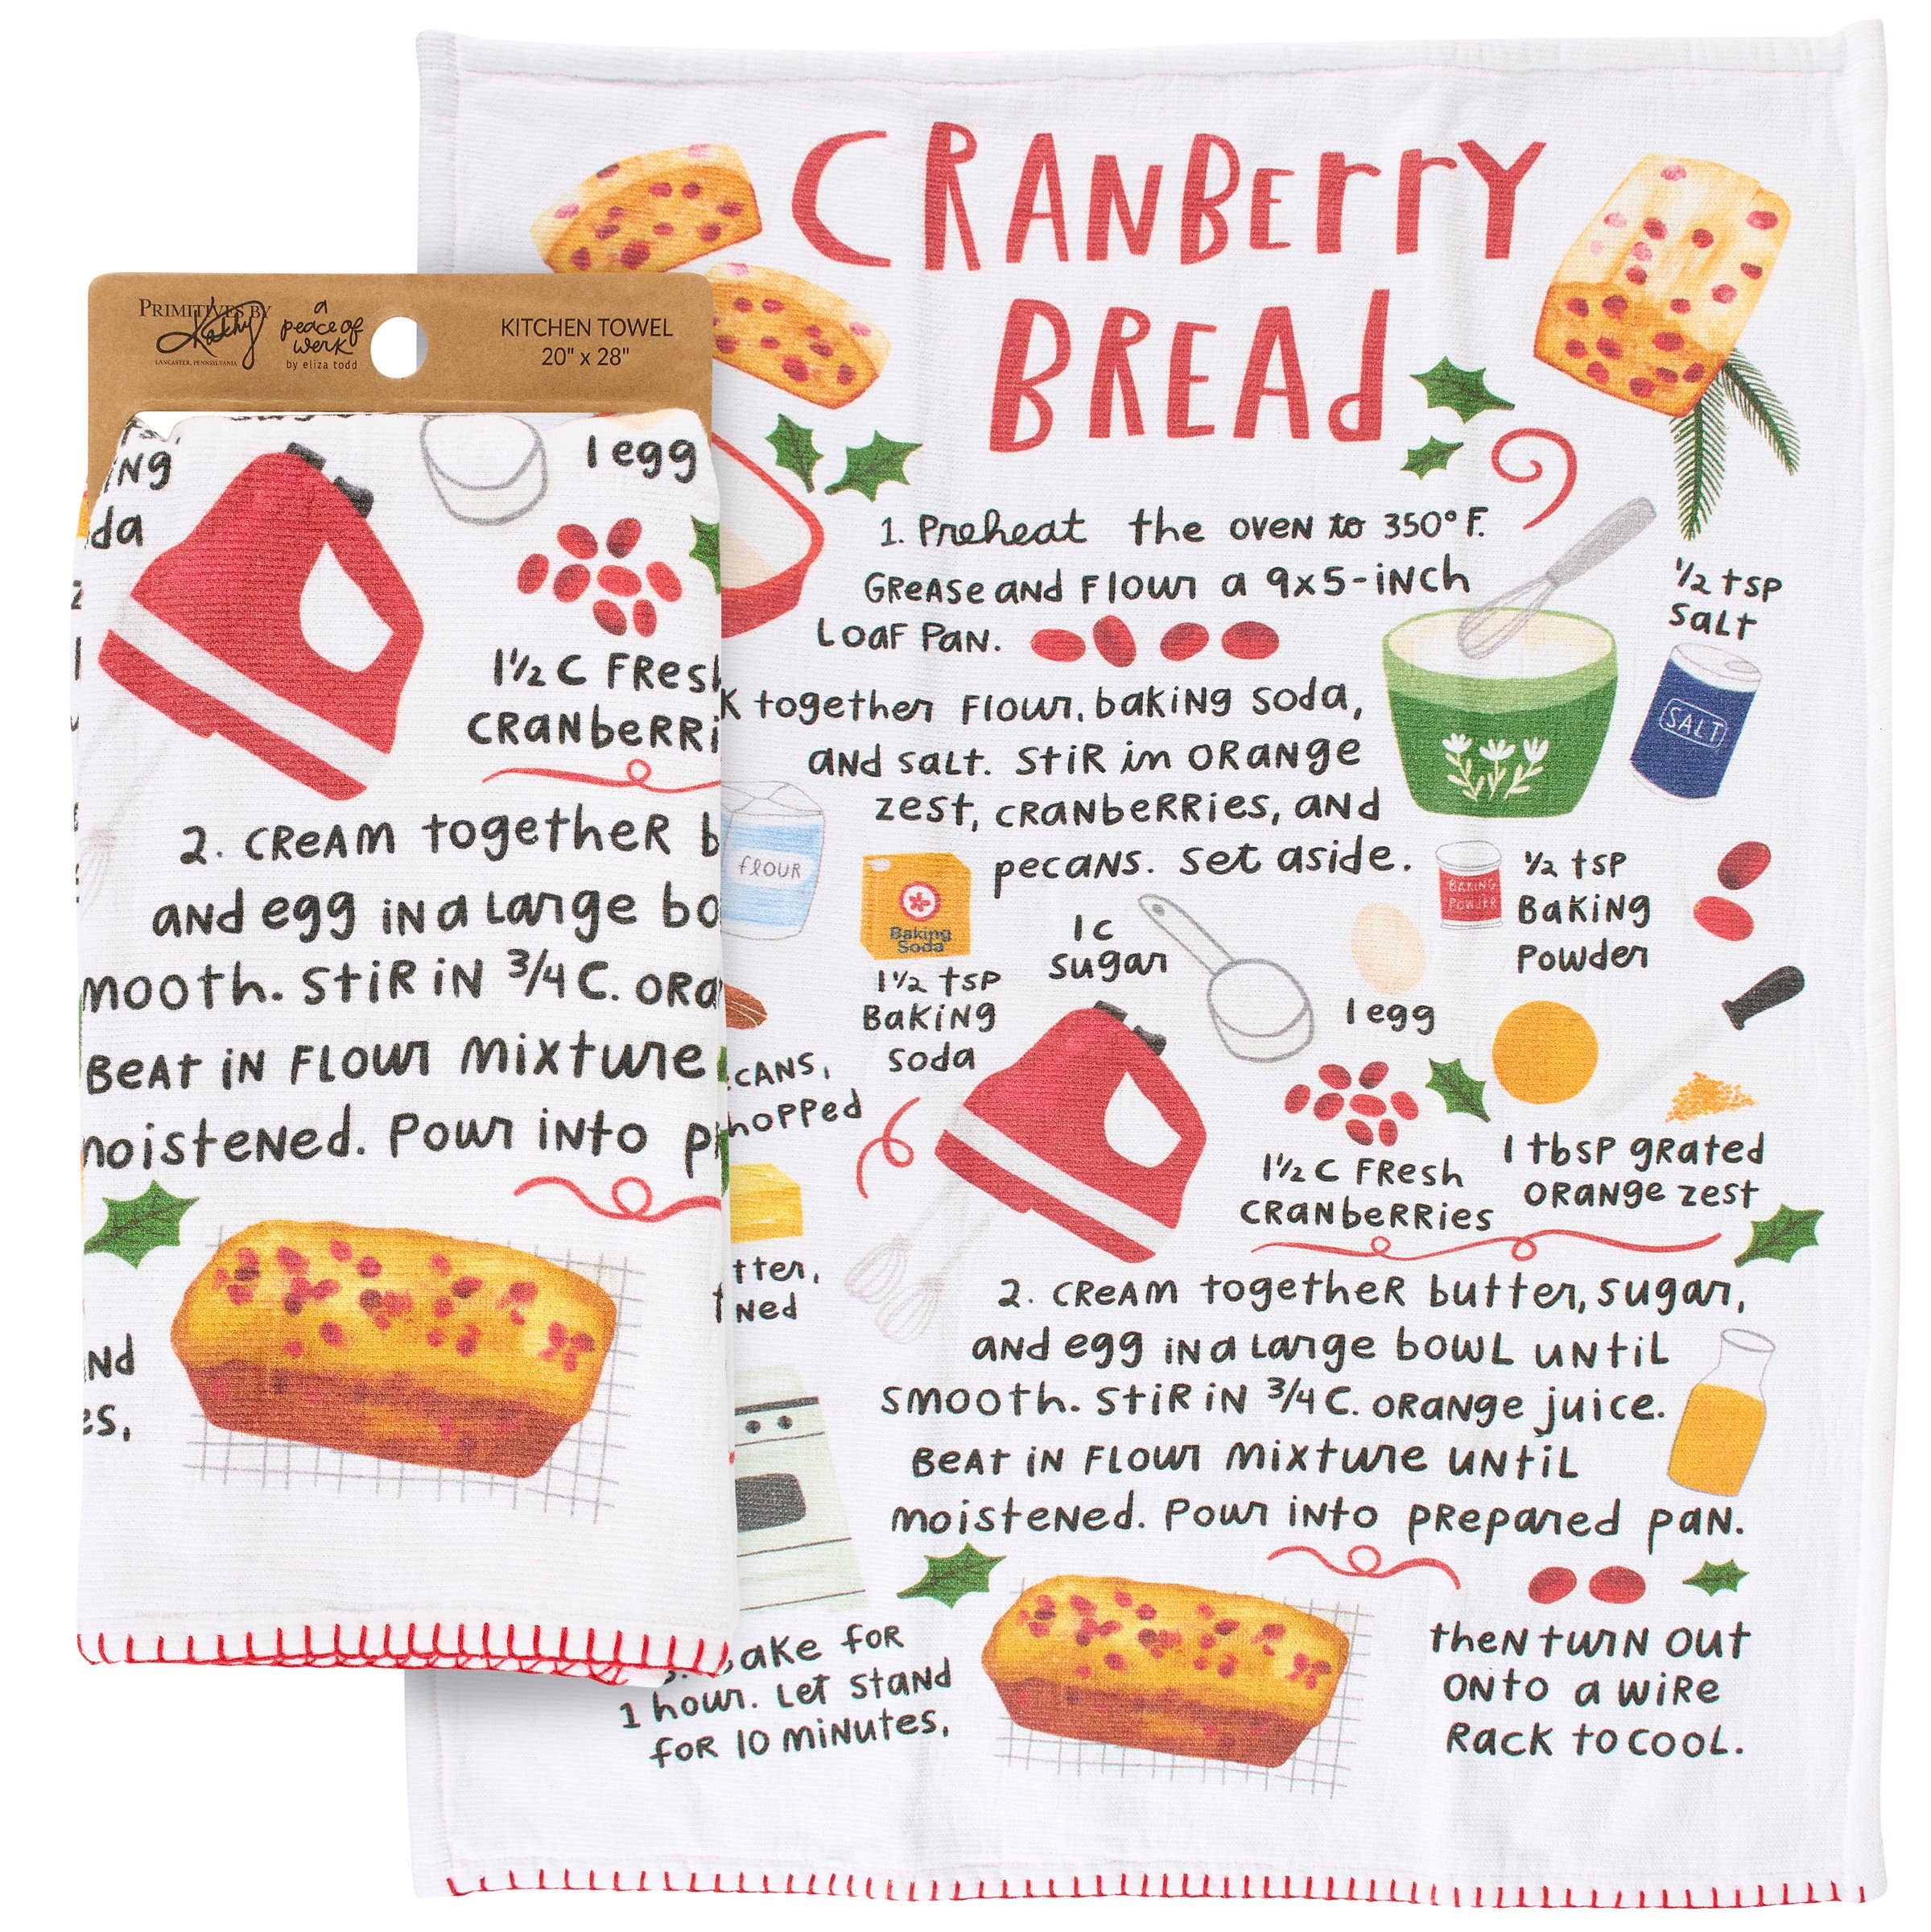 CRANBerrY
BREAd
PRIMITIVES BY
Kathy
LANCASTER, PENNSYLVANIA
a
peace of
werk
by eliza todd
KITCHEN TOWEL
20" x 28"
1 egg
1½ C FResh
CRanbeRRi
2. CReAM togetheR b
aNd egg iN a Large bo
mooth. StiR iN 3/4 C. ORa
BeAt iN FLOUR Mixture
moisteNed. Pour iNto pr
Nd
es,
1. Preheat the oveN to 350° F.
GReAse aNd Flour a 9x5-iNch
Loaf PaN.
K together Flour, baKiNg Soda,
aNd saLt. StiR in ORaNge
zest, CRaNbeRRies, aNd
pecaNs. Set aside.
½ tSP
SaLt
SALT
flOUR
Baking
Soda
1½ tSP
BaKiNg
Soda
1 C
Sugar
1 egg
BAKING
POWDER
½ tSP
BaKiNg
Powder
CANS,
hoPPed
1½ C FResh
CRanbeRRies
1 tbSP gRated
ORaNge zest
tter,
Ned
2. CReAM togetheR butter, Sugar,
aNd egg iN a Large bowL uNtiL
SMooth. StiR iN 3/4 C. ORaNge juice.
BeAt iN FLOUR Mixture uNtiL
moisteNed. Pour iNto pRepared paN.
ake foR
1 hour. Let StaNd
foR 10 miNutes,
theN turN Out
ONto a wiRe
Rack to cooL.